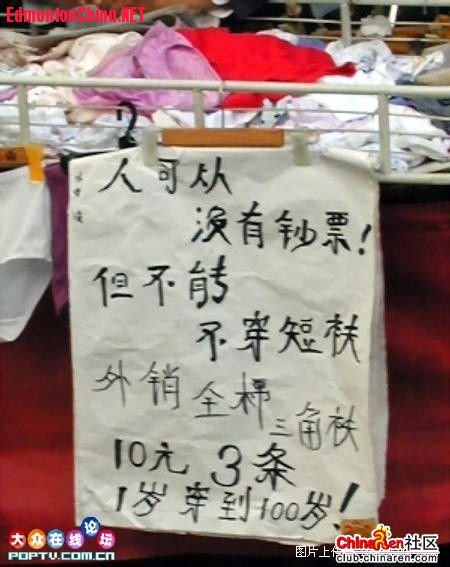 EdmontonChina.NET
人可从
没有钞票!
但不能
不穿短衭
外销全棉
三角衭
10元 3条
1岁穿到100岁!
大众在线论坛
POPTV.COM.CN
ChinaRen社区
club.chinaren.com
图片上